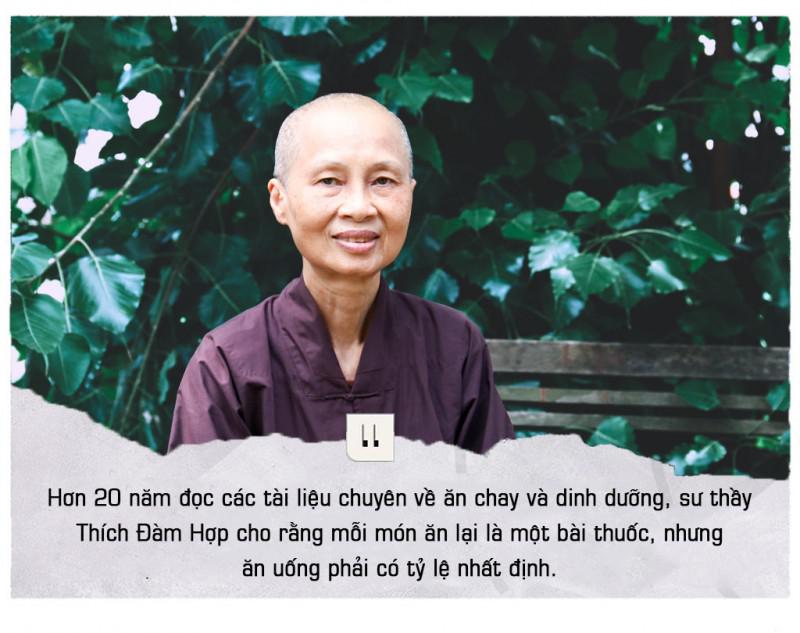 Hơn 20 năm đọc các tài liệu chuyên về ăn chay và dinh dưỡng, sư thầy
Thích Đàm Hợp cho rằng mỗi món ăn lại là một bài thuốc, nhưng
ăn uống phải có tỷ lệ nhất định.